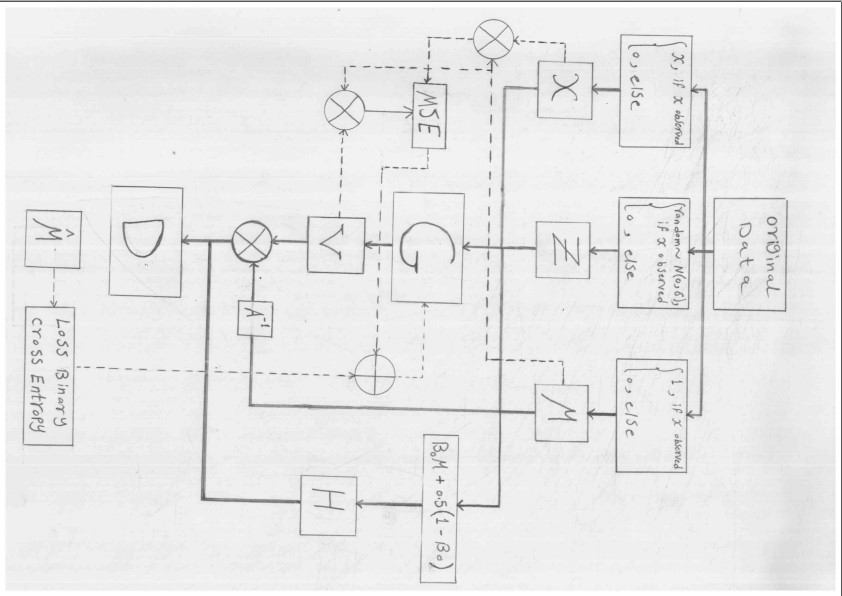 original
Data
x, if x observed
0, else
random~ N(0,6),
if x observed
0, else
1, if x observed
0, else
X
Z
M
MSE
G
B₀M + 0.5(1 - B₀)
V
H
A⁻¹
D
M̂
Loss Binary
Cross Entropy